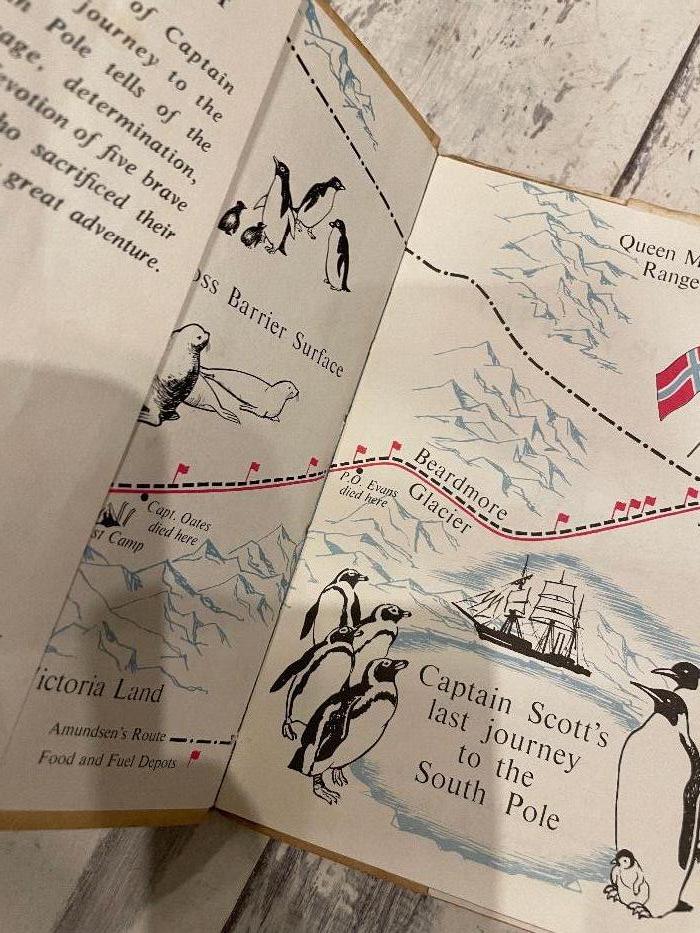 of Captain
journey to the
Pole tells of the
determination,
devotion of five brave
who sacrificed their
great adventure.
oss Barrier Surface
Capt. Oates
died here
st Camp
ictoria Land
Amundsen's Route
Food and Fuel Depots
Queen M
Range
P.O. Evans
died here
Beardmore
Glacier
Captain Scott's
last journey
to the
South Pole